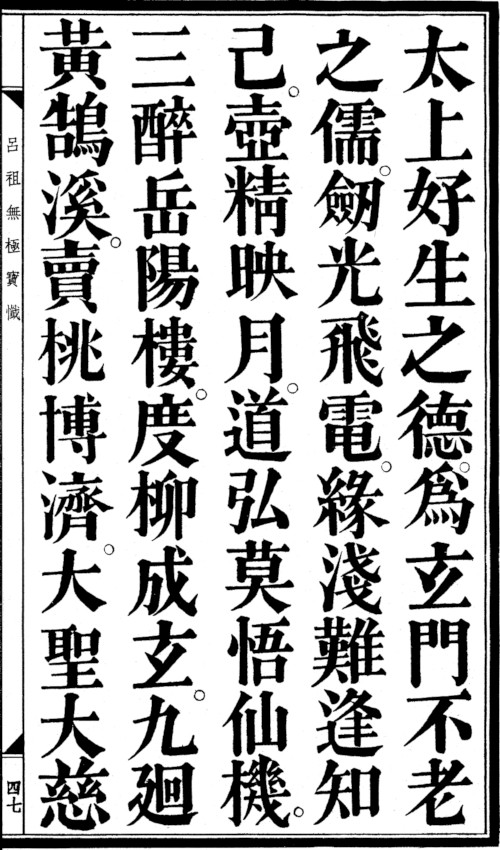 太上好生之德。爲玄門不老
之儒。劒光飛電。緣淺難逢知
己。壺精映月。道弘莫悟仙機。
三醉岳陽樓。度柳成玄。九廻
黃鵠溪。賣桃博濟。大聖大慈
呂祖無極寶懺
四七